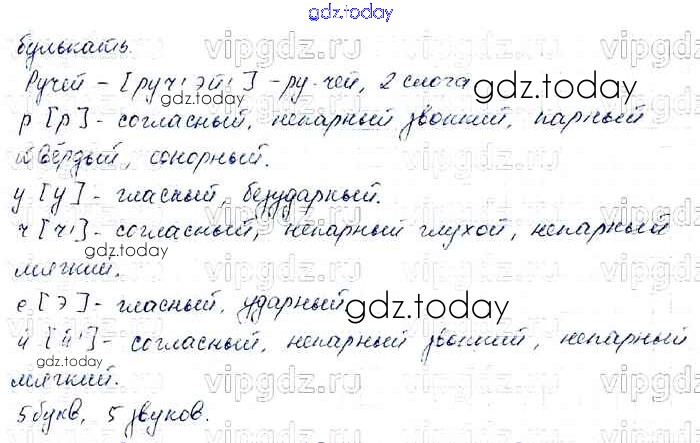 gdz.today
булькать.
Ручей - [руч' эй'] - ру-чей, 2 слога
gdz.today
gdz.today
р [р] - согласный, непарный звонкий, парный
твёрдый, сонорный.
vipgdz.ru
vipgdz.ru
у [у] - гласный, безударный.
ч [ч'] - согласный, непарный глухой, непарный
gdz.today
мягкий.
vipgdz.ru
vipgdz.ru
е [э] - гласный, ударный
gdz.today
й [й'] - согласный, непарный звонкий, непарный
gdz.today
мягкий.
vipgdz.ru
vipgdz.ru
5 букв, 5 звуков.